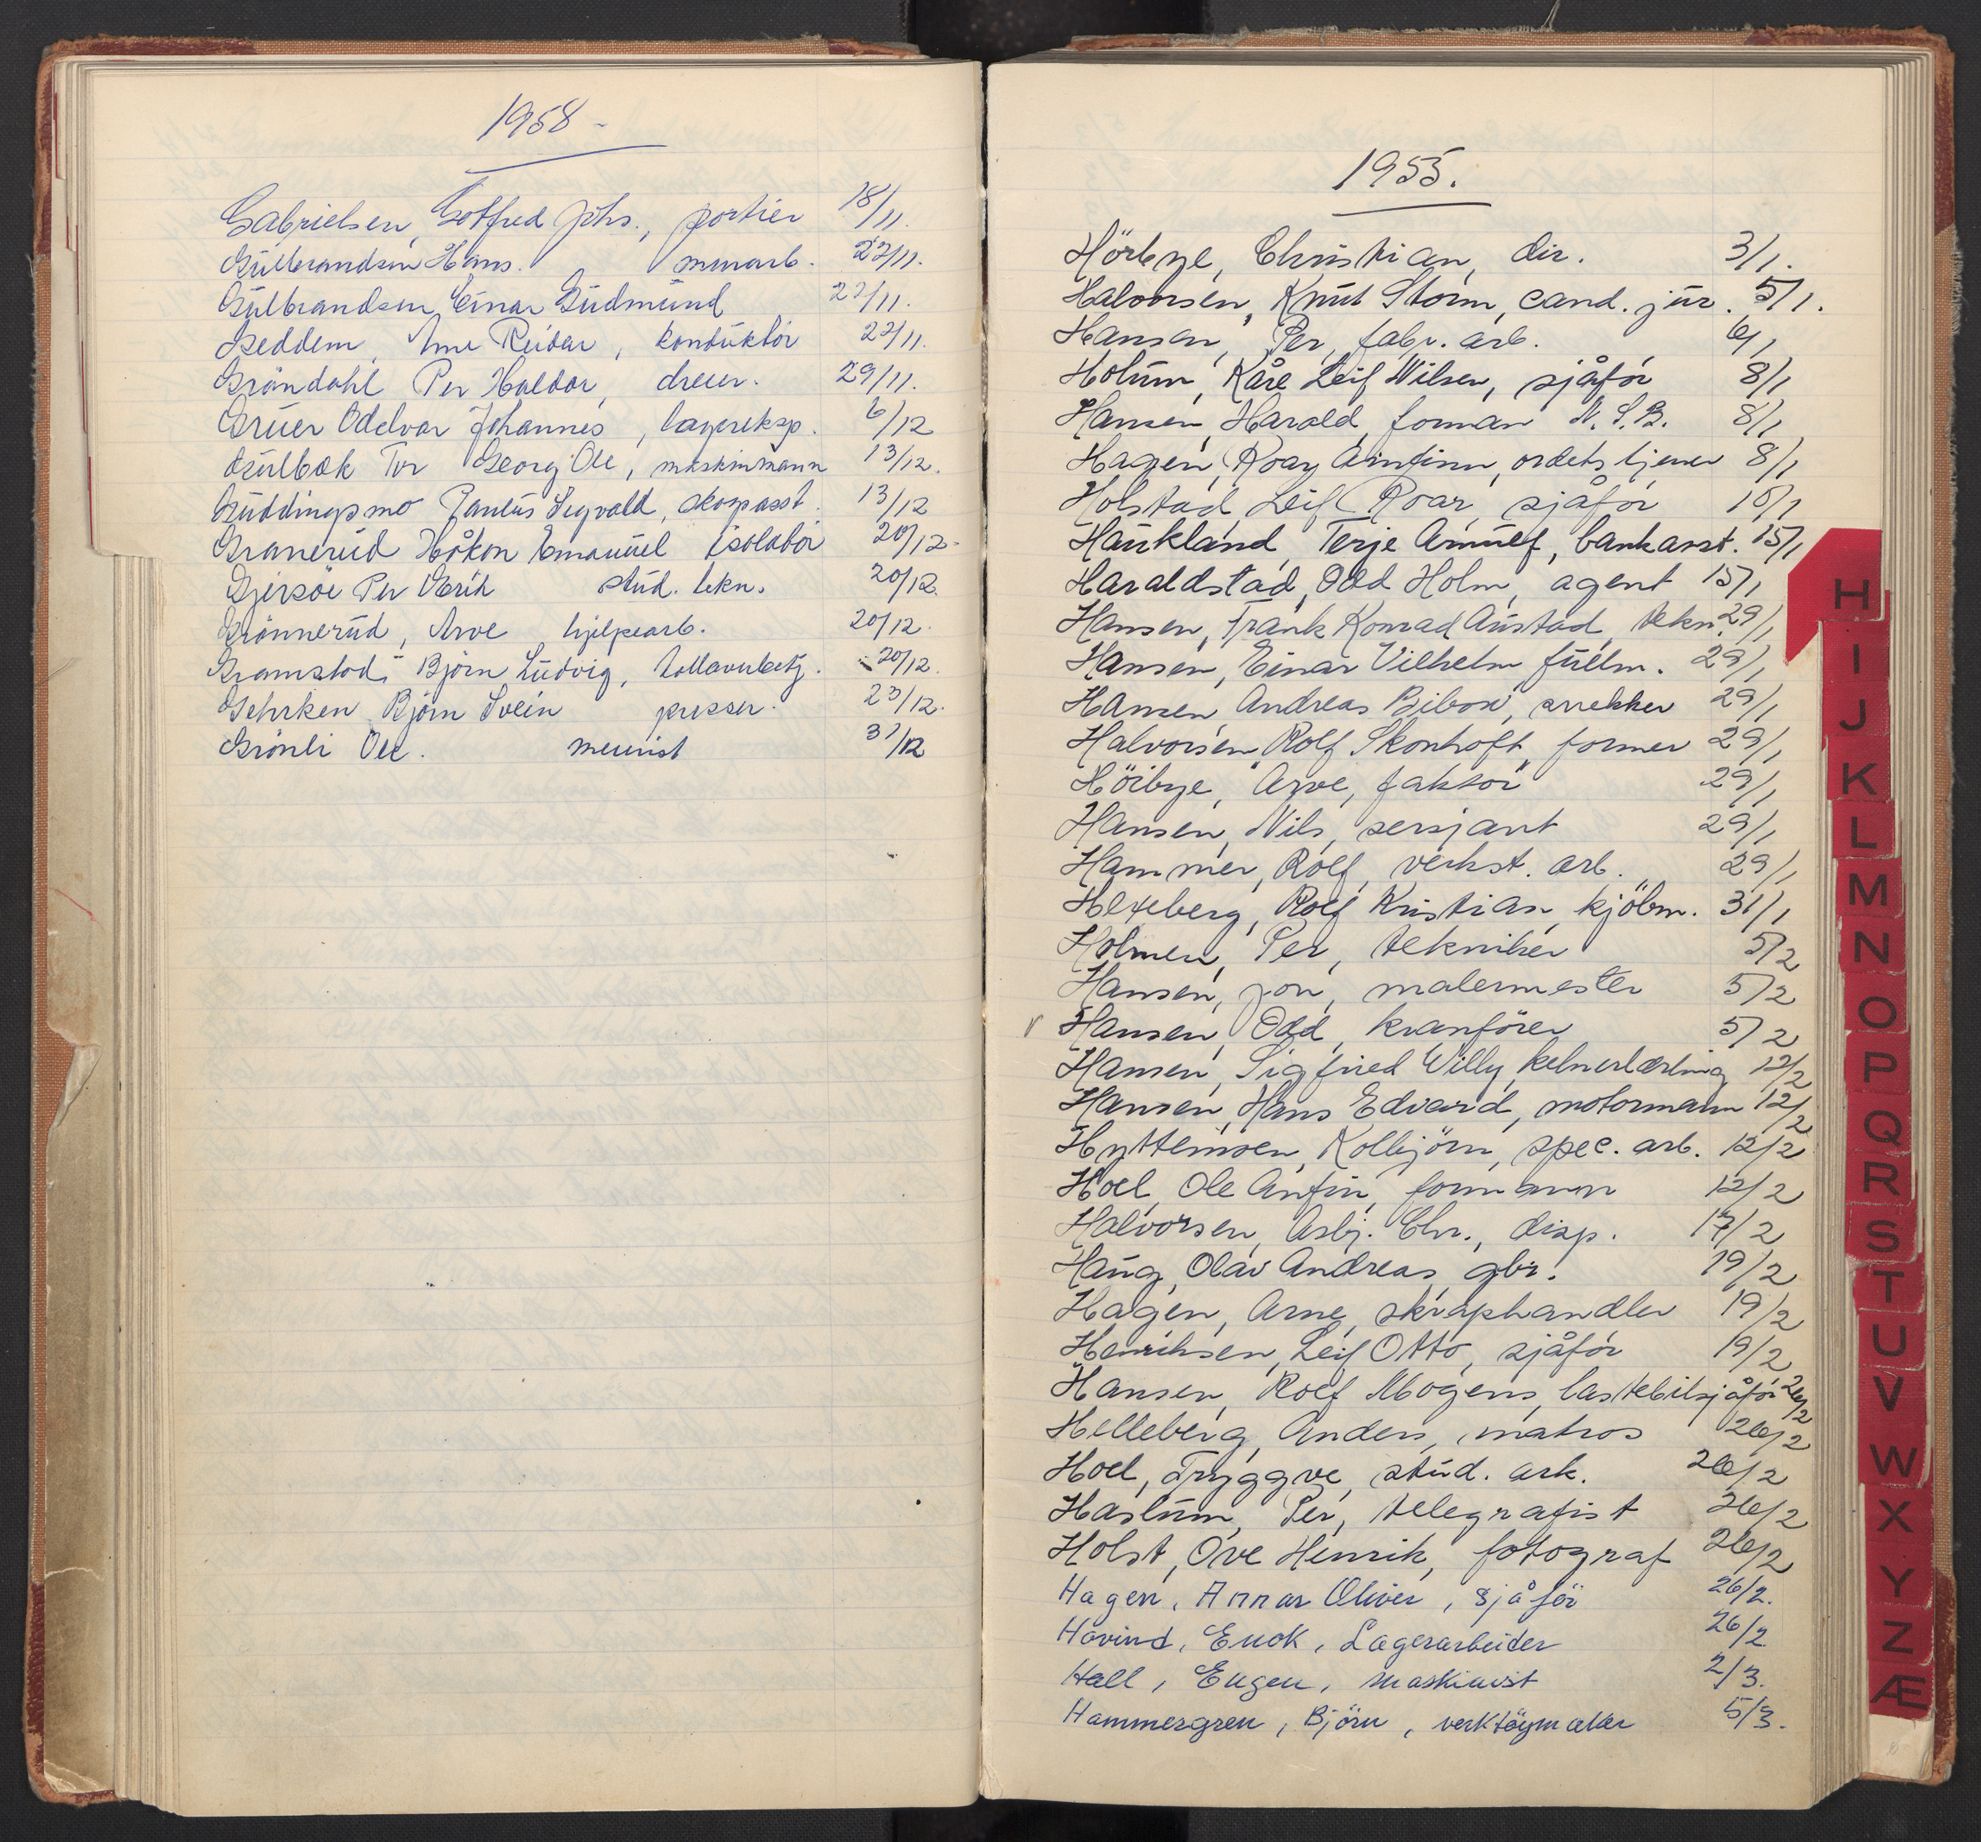 1958 -
Gabrielsen, Gotfred Johs., portier 18/11.
Gulbrandsen Hans. murarb. 22/11.
Gulbrandsen Einar Gudmund 22/11.
Geddem, Arne Reidar, konduktör 22/11.
Gröndahl Per Haldor, dreier. 29/11.
Gruer Odelvar Johannes, lagereksp. 6/12
Gulbæk Tor Georg Ole, maskinmann 13/12.
Guddingsmo Paulus Sigvald, 13/12
Granerud Håkon Emanuel isolatör 20/12-
Gjersöe Per Erik stud. tekn. 20/12.
Grönnerud, Arve hjelpearb. 20/12.
Gramstad, Björn Ludvig, tollaverbetj. 20/12.
Gehrken Björn Svein presser. 23/12.
Grönli Ole. murer 31/12
1955.
Hörbye, Christian, dir. 3/1.
Halvorsen, Knut Storm, cand. jur. 5/1.
Hansen, Per, fabr. arb. 6/1
Holum, Kåre Leif Wilsen, sjåför 8/1
Hansen, Harald, forman N.S.B. 8/1
Hagen, Roay Arnfinn, ordetstjener 8/1
Holstad, Leif Roar, sjåför 15/1
Haukland, Terje Arnulf, bankasst. 15/1
Haraldstad, Odd Holm, agent 15/1
Hansen, Frank Konrad Austad, tekn. 29/1
Hansen, Einar Vilhelm, fullm. 29/1
Hansen, Andreas snekker 29/1
Halvorsen, Rolf Skonhoft, former 29/1
Höibye, Arve, faktor 29/1
Hansen, Nils, sersjant 29/1
Hammer, Rolf, verkst. arb. 29/1
Hexeberg, Rolf Kristian, kjöbm. 31/1
Holmen, Per, tekniker 5/2
Hansen, Jon, malermester 5/2
v Hansen, Odd, kranförer 5/2
Hansen, Sigfried Willy, kelnerlærling 12/2
Hansen, Hans Edvard, motormann 12/2
Hyttemoen, Kolbjörn, spec. arb. 12/2
Hoel, Ole Anfin, formann 12/2
Halvorsen, Asbj. Chr., disp. 17/2
Haug, Olav Andreas, gbr. 19/2
Hagen, Arne, skraphandler 19/2
Henriksen, Leif Otto, sjåför 19/2
Hansen, Rolf Mogens, lastebilsjåför 26/2
Helleberg, Anders, matros 26/2
Hoel, Tryggve, stud. ark. 26/2
Haslum, Per, telegrafist 26/2
Holst, Ove Henrik, fotograf 26/2
Hagen, Annar Oliver, sjåför 26/2.
Hovind, Enok, Lagerarbeider 26/2
Hall, Eugen, maskinist 2/3.
Hammergren, Björn, verktöymaker 5/3.
H
I
J
K
L
M
N
O
P
Q
R
S
T
U
V
W
X
Y
Z
Æ